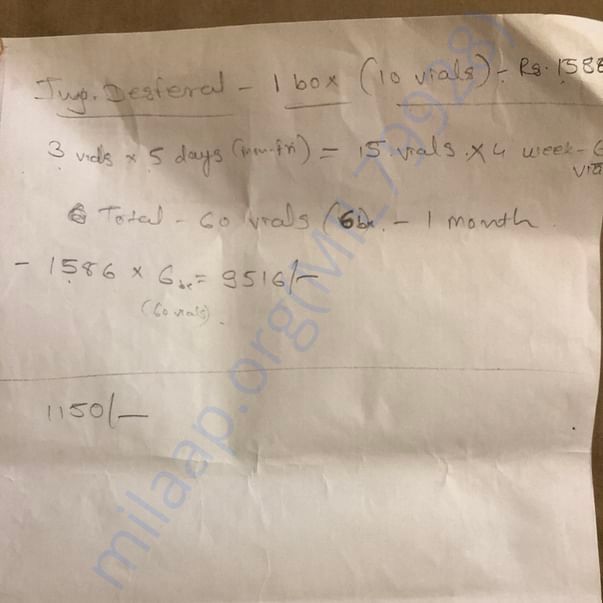 Inj. Desferal - 1 box (10 vials) - Rs. 1588
3 vials x 5 days (mon-fri) = 15 vials x 4 week - 6
Total - 60 vials (6bx. - 1 month
- 1586 x 6bx = 9516/-
(60 vials).
1150/-
milaap.org(MIL79928)